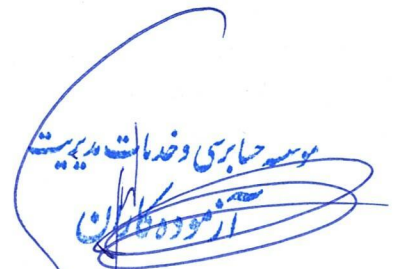 موسسه حسابرسی و خدمات مدیریت
آزموده کاران